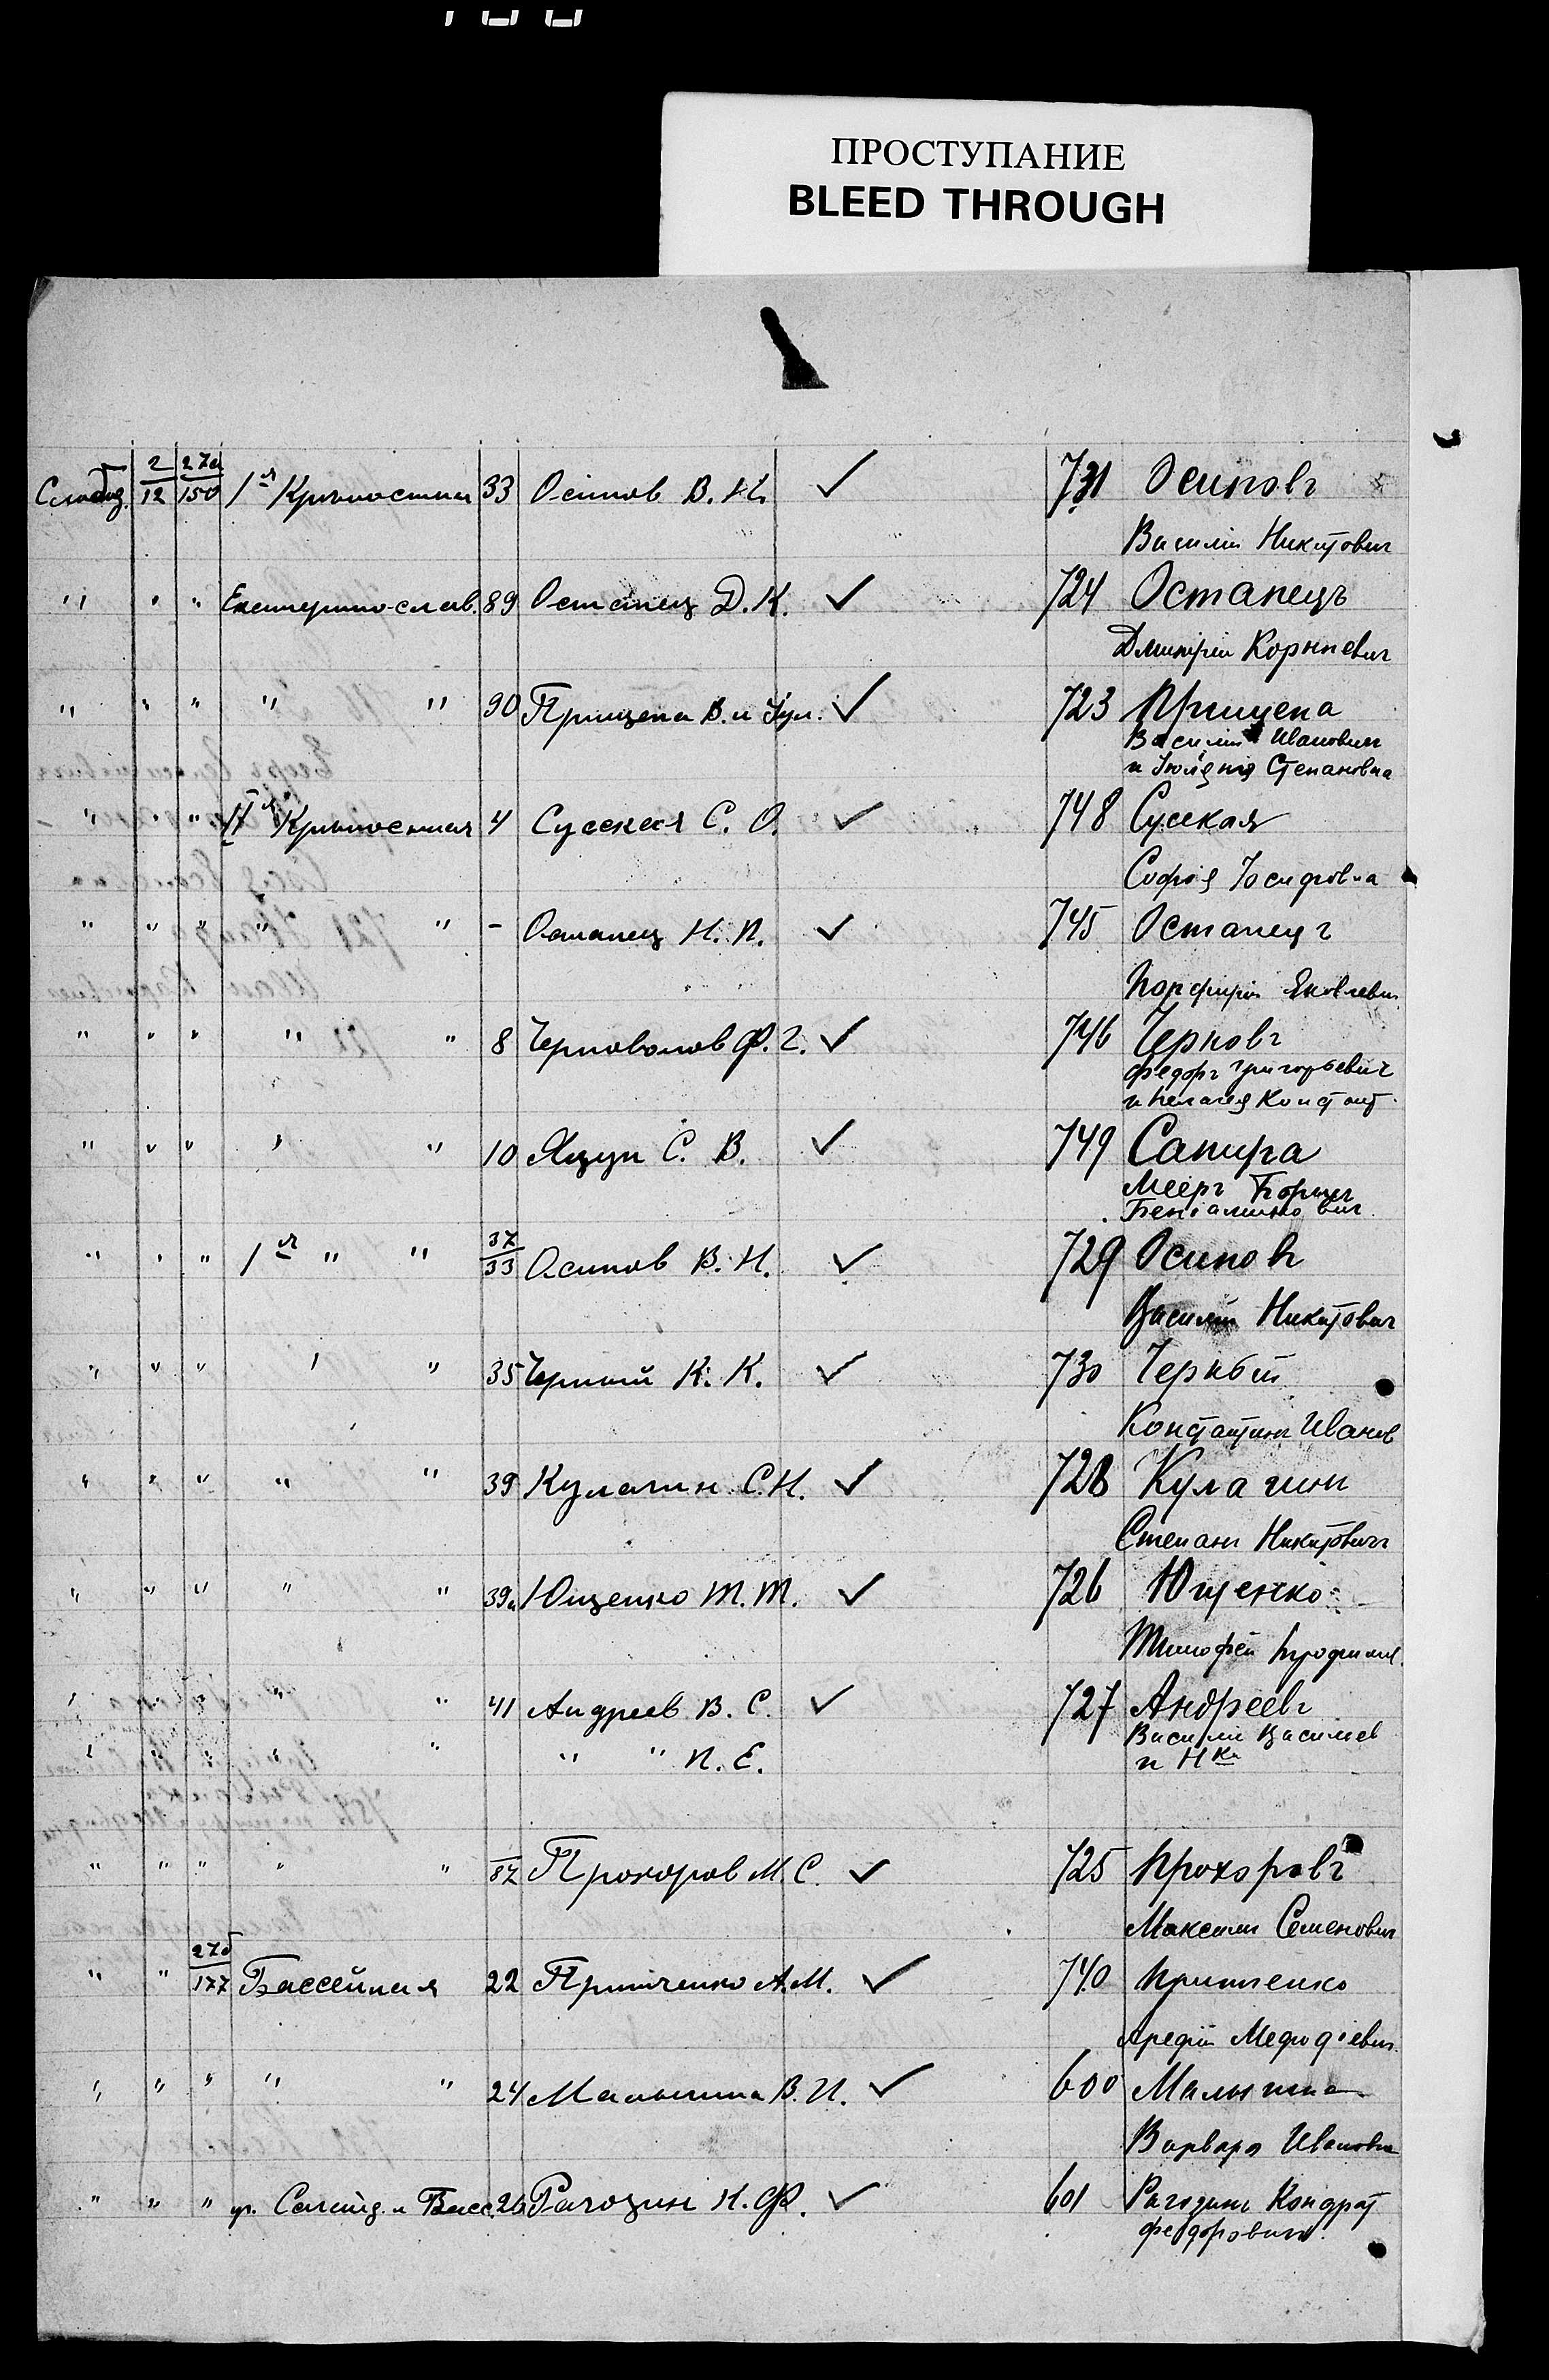 ПРОСТУПАНИЕ
BLEED THROUGH
Слобод. 2/12 27а/150 1я Крѣпостная 33 Осипов В. Н. ✓ 731 Осиповъ
Василій Никитович
" " " Екатеринослав. 89 Останец Д. К. ✓ 724 Останецъ
Дмитрій Корнѣевич
" " " " " 90 Прищепа В. и Іул. ✓ 723 Прищепа
Василій Иванович
и Іюлянія Степановна
" " " IIя Крѣпостная 4 Сусская С. О. ✓ 748 Сусская
Софія Іосифовна
" " " " " - Останец Н. П. ✓ 745 Останецъ
Порфирій Яковлевич
" " " " " 8 Черноволов Ф. Г. ✓ 746 Черновъ
Федоръ Григорьевич
и Пелагея Констант.
" " " " " 10 Яцун С. В. ✓ 749 Сапира
Мееръ Борис
Беніаминович
" " " 1я " " 37/33 Осипов В. Н. ✓ 729 Осиповъ
Василій Никитович
" " " " " 35 Черный К. К. ✓ 730 Черный
Константин Иванов
" " " " " 39 Кулагин С. Н. ✓ 728 Кулагин
Степанъ Никитович
" " " " " 39а Ющенко Т. Т. ✓ 726 Ющенко
Тимофей Трофимов.
" " " " " 41 Андреев В. С. ✓ 727 Андреевъ
Василій Васильев
" " " " " " " П. Е. и Нки
" " " " " 87 Прохоров М. С. ✓ 725 Прохоровъ
Максим Семенович
" " 27б/177 Бассейная 22 Притченко А. М. ✓ 740 Притченко
Арефій Мефодіевич
" " " " " 24 Малышина В. И. ✓ 600 Малышина
Варвара Ивановна
" " " уг. Салтид. и Басс. 26 Рагозин К. Ф. ✓ 601 Рагозинъ Кондрат
Федорович